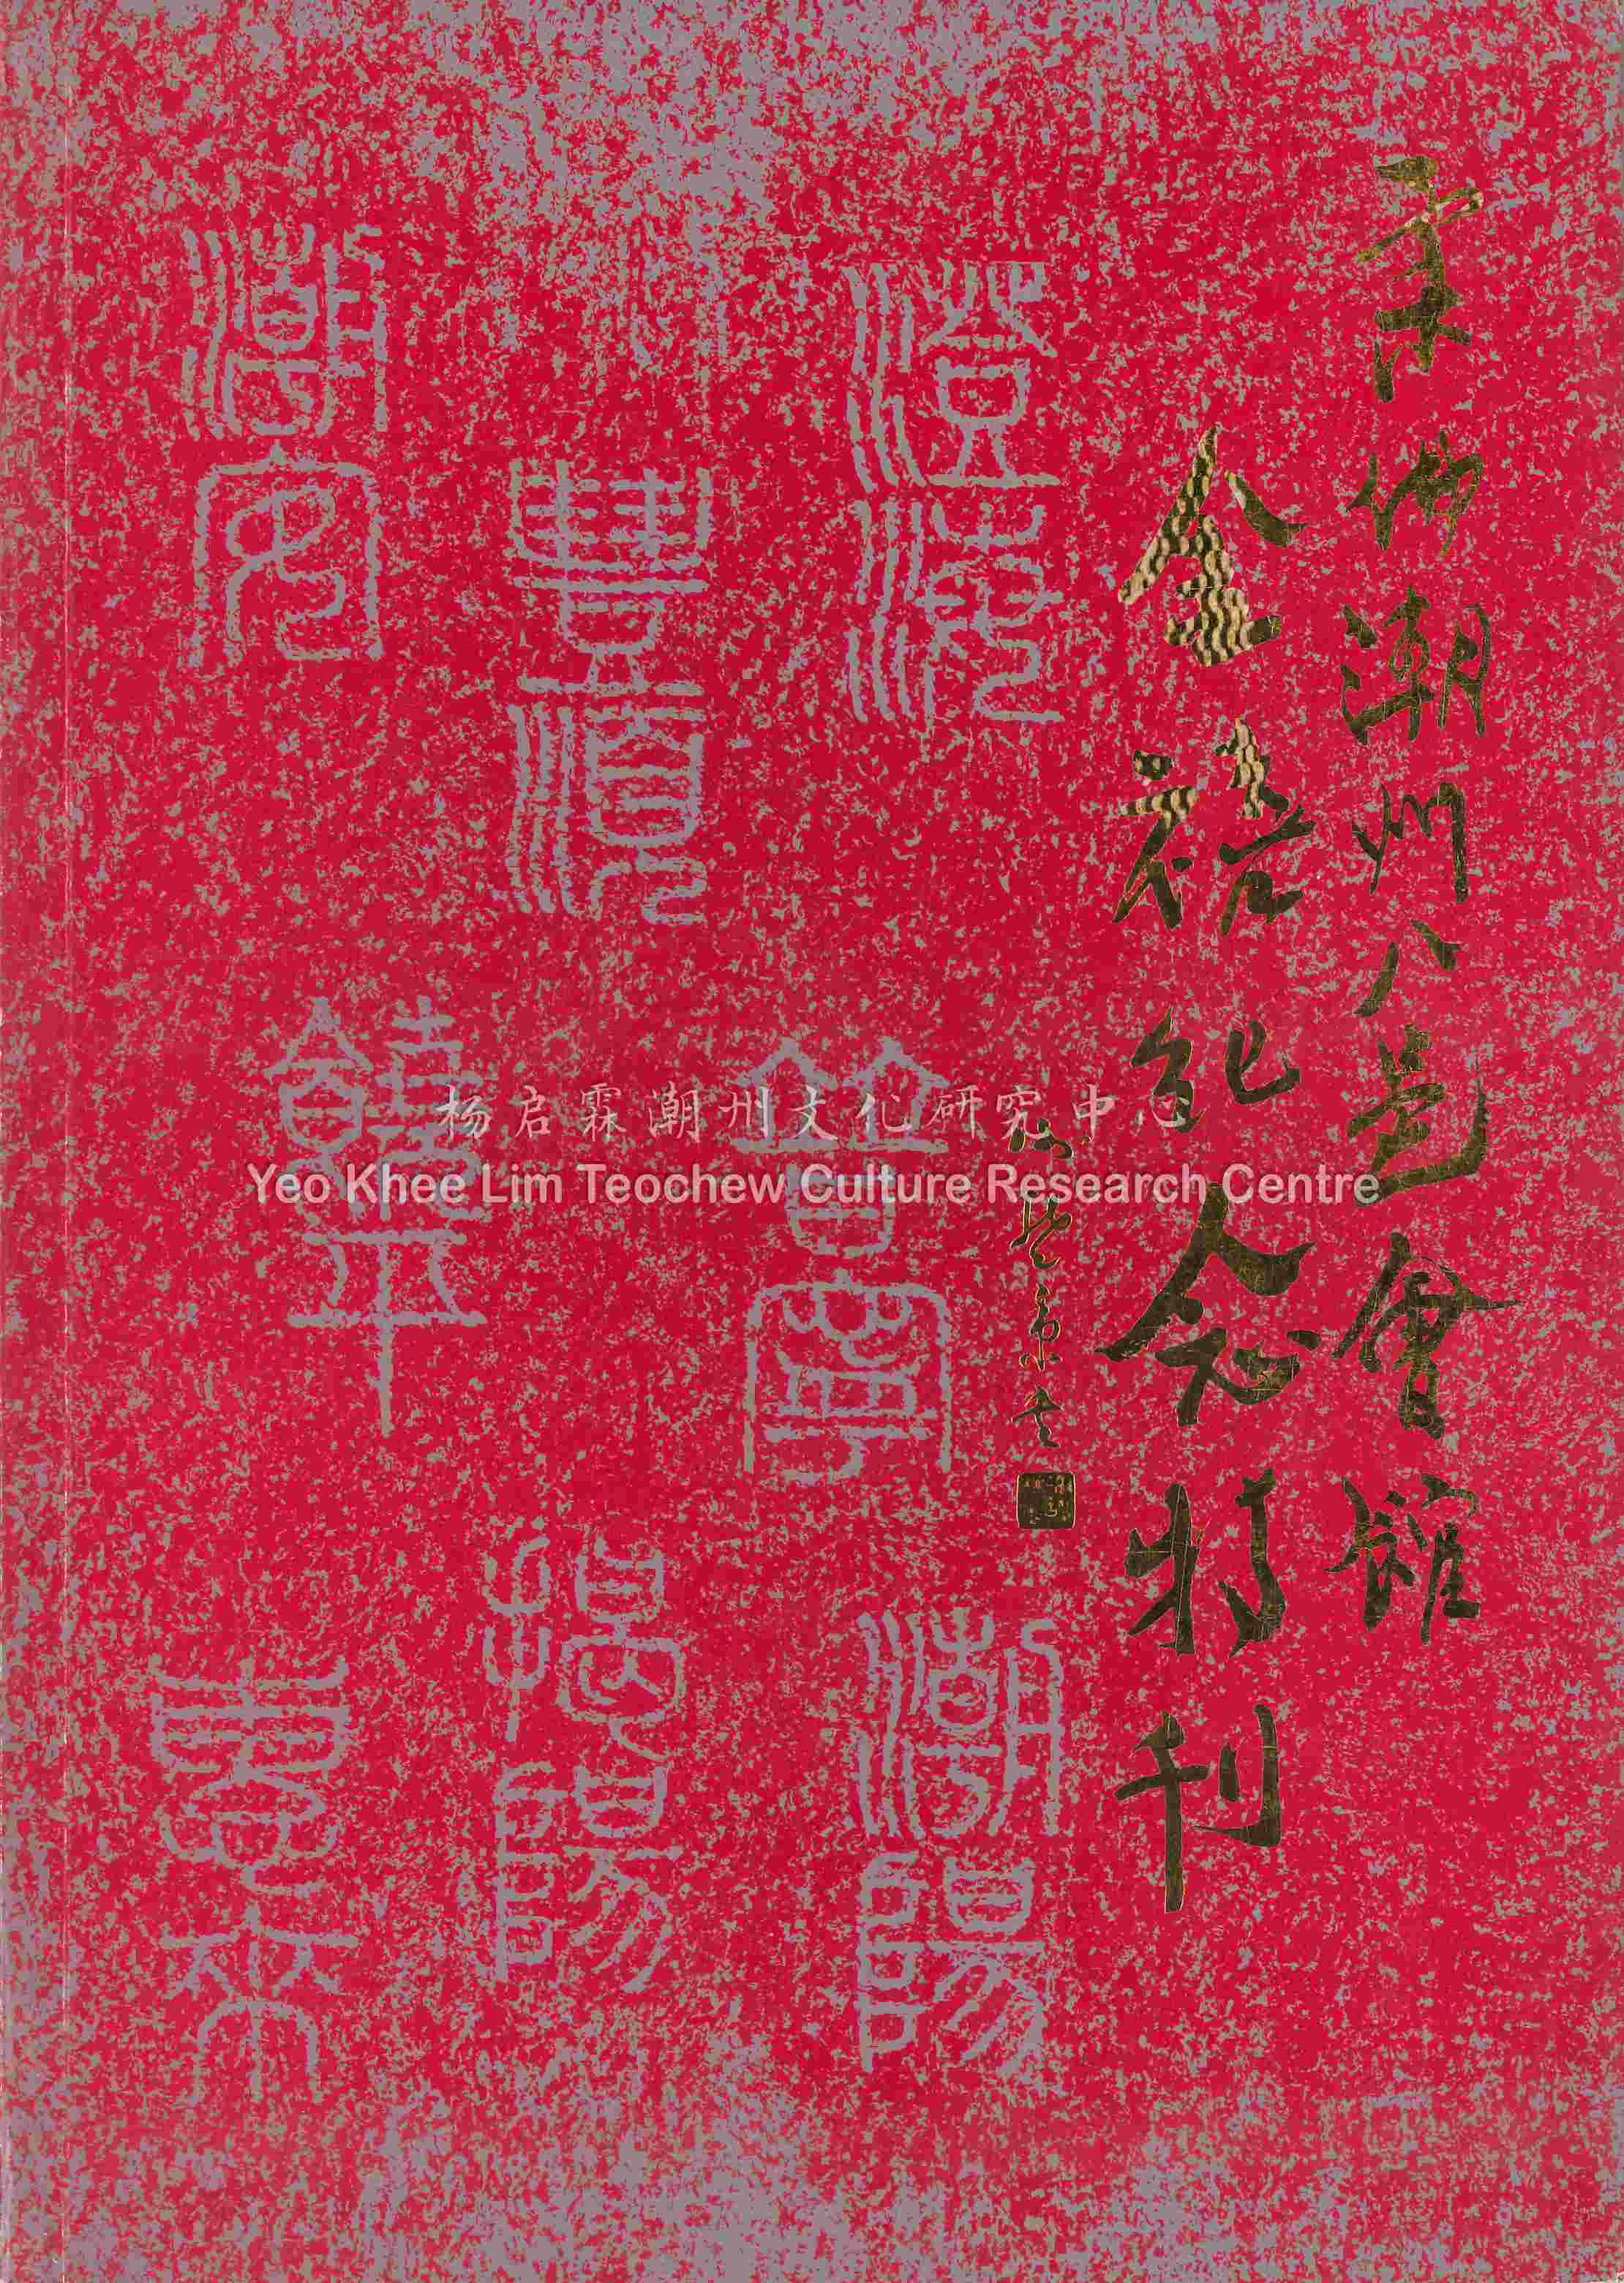 柔佛潮州八邑會館
金禧紀念特刊
澄海
豐順
潮安
普寧
饒平
潮陽
揭陽
惠來
杨启霖潮州文化研究中心
Yeo Khee Lim Teochew Culture Research Centre